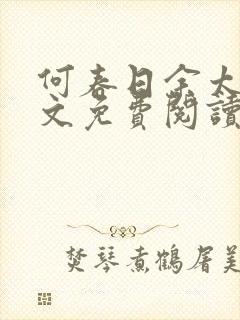 何春日余大
文免費閱讀
焚琴煮鶴屠美